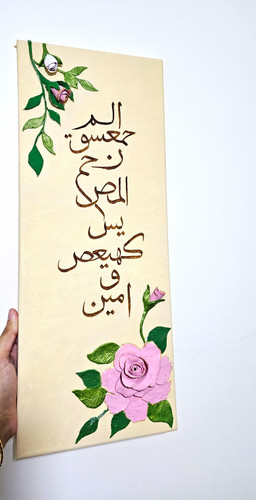 الم
حمعسق
ن حم
المص
يس
كهيعص
ق
امين